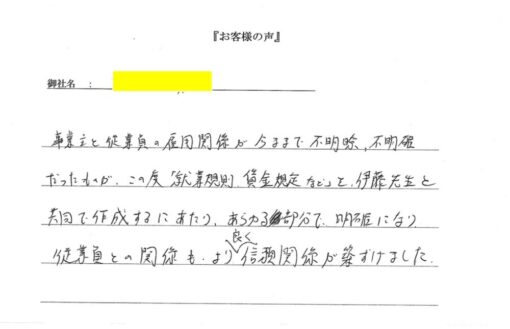 『お客様の声』
御社名 :
事業主と従業員の雇用関係が今まで不明瞭、不明確
だったものが、この度「就業規則 賃金規定 など」を、伊藤先生と
共同で作成するにあたり、あらゆる部分で、明確になり
従業員との関係も、より良く信頼関係が築ずけました。